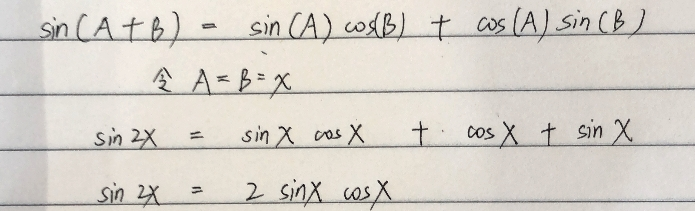 sin(A+B) = sin(A) cos(B) + cos(A) sin(B)
令 A=B=x
sin 2x = sin x cos x + cos x + sin x
sin 2x = 2 sinx cosx